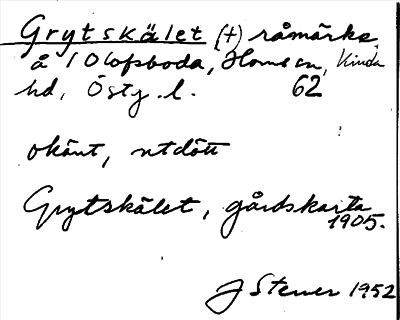 Grytskälet (+) råmärke
å / Olofsboda, Horns sn, Kinda
hd, Östg. l. 62
okänt, utdött
Grytskälet, gårdskarta
1905.
J Stener 1952